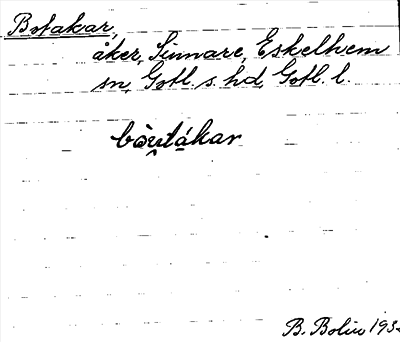 Botakar,
åker, Simnare, Eskelhem
sn, Gotl. s. hd, Gotl. l.
bòu̯tákar
B. Bolin 193